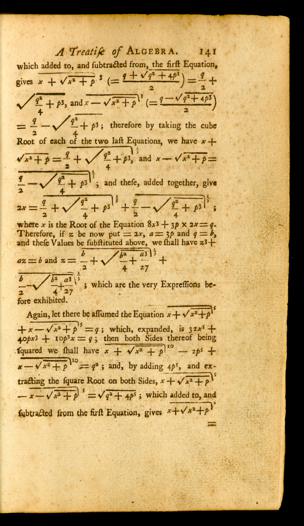 A Treatise of ALGEBRA. 141
which added to, and subtracted from, the first Equation,
gives x + √x² + p)⁵ (= q + √q² + 4p⁵ / 2) = q/2 +
√q²/4 + p⁵, and x — √x² + p)⁵ (= q — √q² + 4p³ / 2)
= q/2 — √q²/4 + p³; therefore by taking the cube
Root of each of the two last Equations, we have x +
√x² + p = q/2 + √q²/4 + p³)^⅓, and x — √x² + p =
q/2 — √q²/4 + p³)^⅓; and these, added together, give
2x = q/2 + √q²/4 + p³)^⅓ + q/2 — √q²/4 + p³)^⅓;
where x is the Root of the Equation 8x³ + 3p × 2x = q.
Therefore, if z be now put = 2x, a = 3p and q = b,
and these Values be substituted above, we shall have z³ +
az = b and z = b/2 + √b²/4 + a³/27)^⅓ +
b/2 — √b²/4 + a³/27)^⅓; which are the very Expressions be-
fore exhibited.
Again, let there be assumed the Equation x + √x² + p)⁵
+ x — √x² + p)⁵ = q; which, expanded, is 32x⁵ +
40px³ + 10p²x = q; then both Sides thereof being
squared we shall have x + √x² + p)¹⁰ — 2p⁵ +
x — √x² + p)¹⁰ = q²; and, by adding 4p⁵, and ex-
tracting the square Root on both Sides, x + √x² + p)⁵
— x — √x² + p)⁵ = √q² + 4p⁵; which added to, and
subtracted from the first Equation, gives x + √x² + p)⁵
=